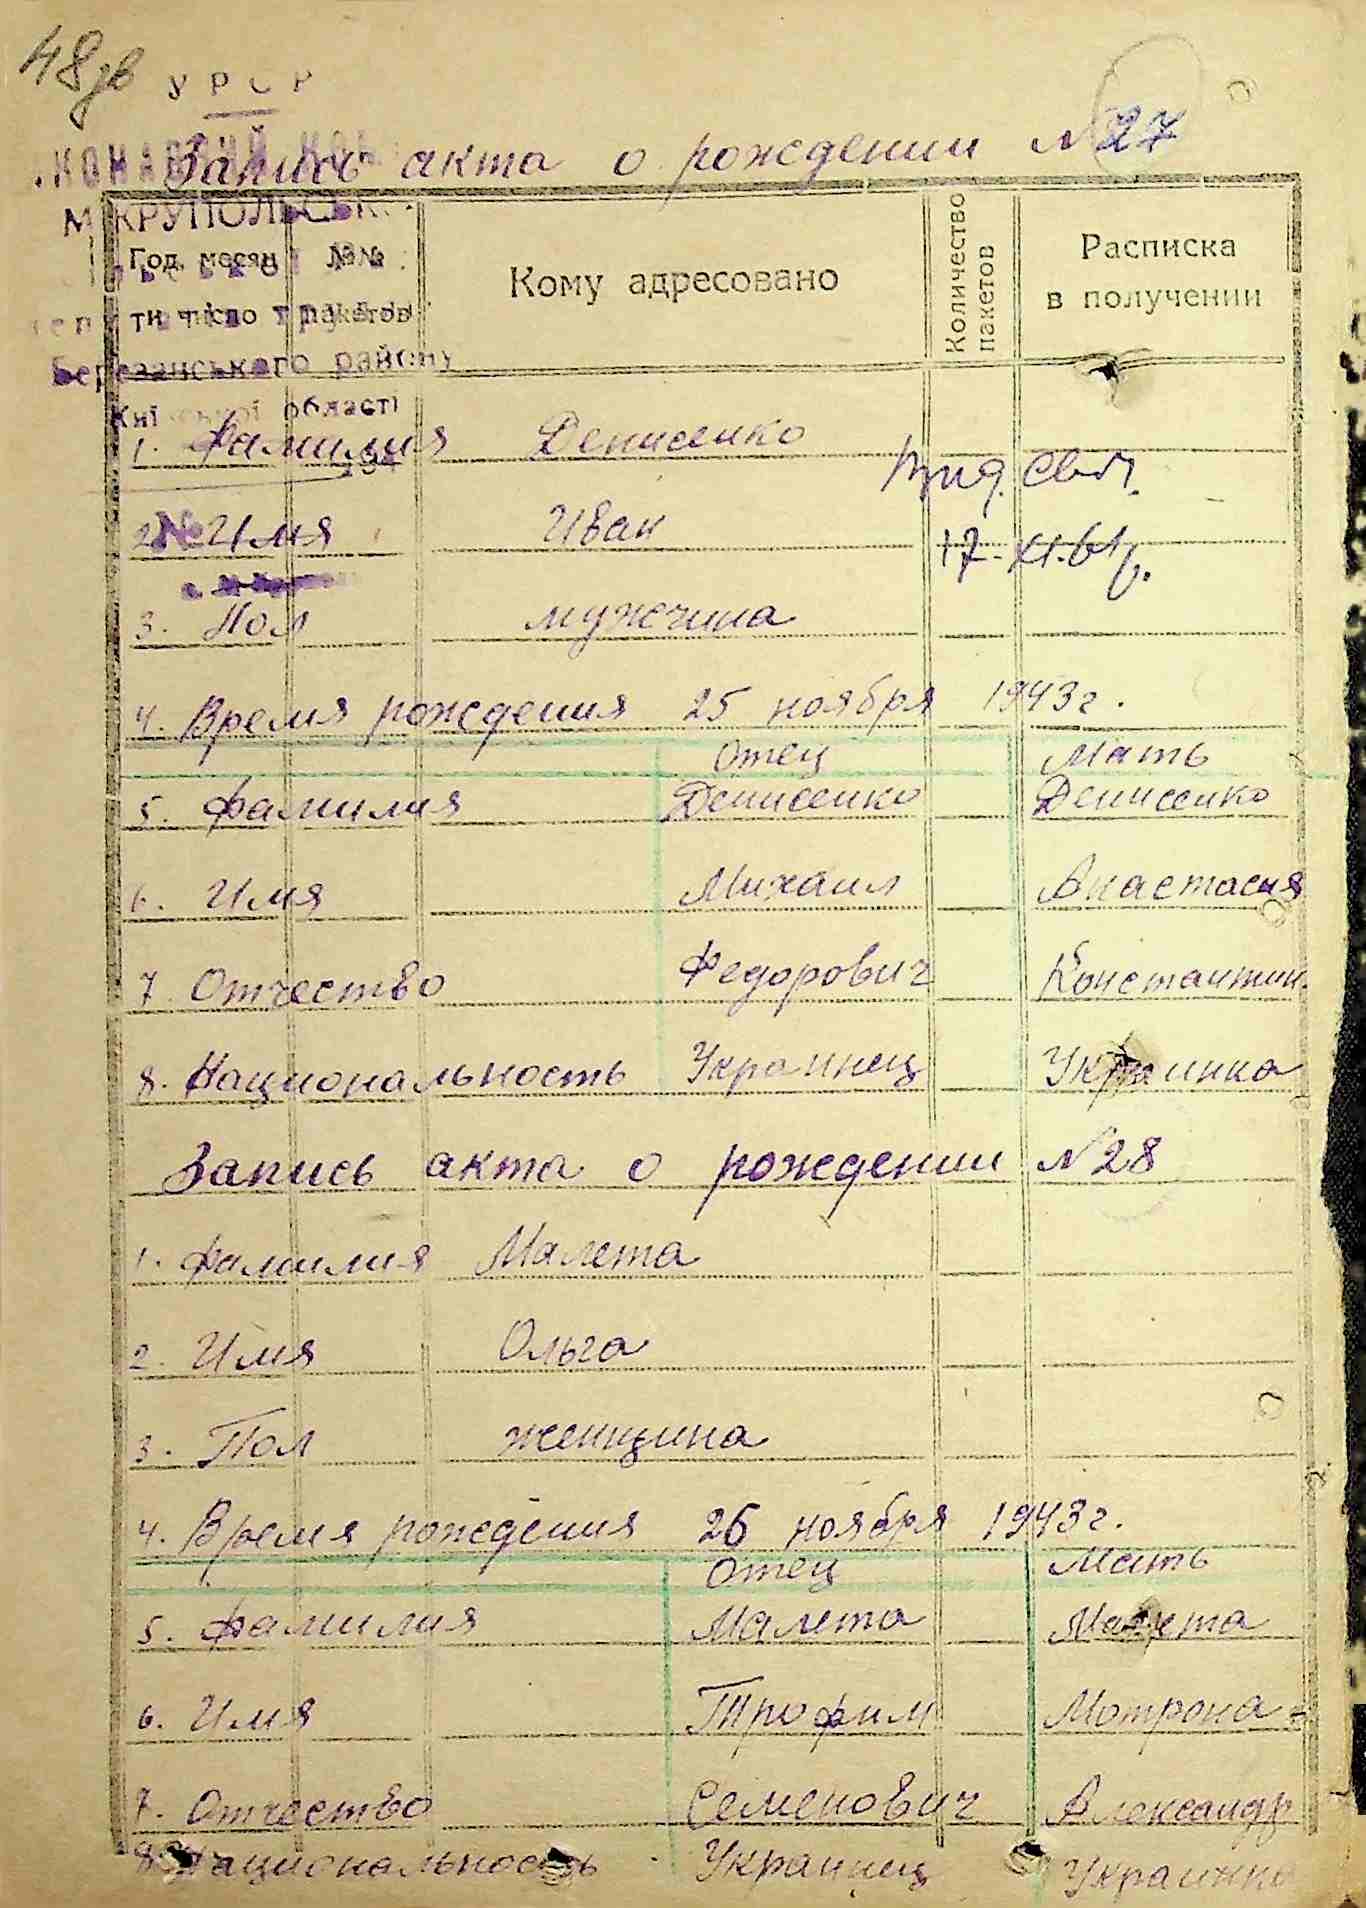 48зв
УРСР
Запись акта о рождении №27
М КРУПОЛЬСЬК
Год, месян №№ Кому адресовано Количество пакетов Расписка в получении
ти число пакетов
Березанського району
області
1. Фамилия Денисенко
Вид. свід.
2. Имя Иван
17-XI-61р.
3. Пол мужчина
4. Время рождения 25 ноября 1943г.
Отец Мать
5. Фамилия Денисенко Денисенко
6. Имя Михаил Анастасия
7. Отчество Федорович Константин.
8. Национальность Украинец Украинка
Запись акта о рождении №28
1. Фамилия Малета
2. Имя Ольга
3. Пол женщина
4. Время рождения 26 ноября 1943г.
Отец Мать
5. Фамилия Малета Малета
6. Имя Трофим Мотрона
7. Отчество Семенович Александр
8. Национальность Украинец Украинка